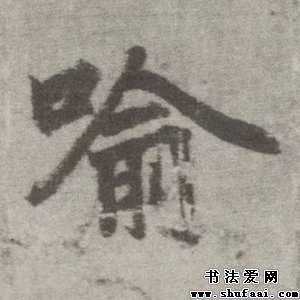 喻
书法爱网
www.shufaai.com